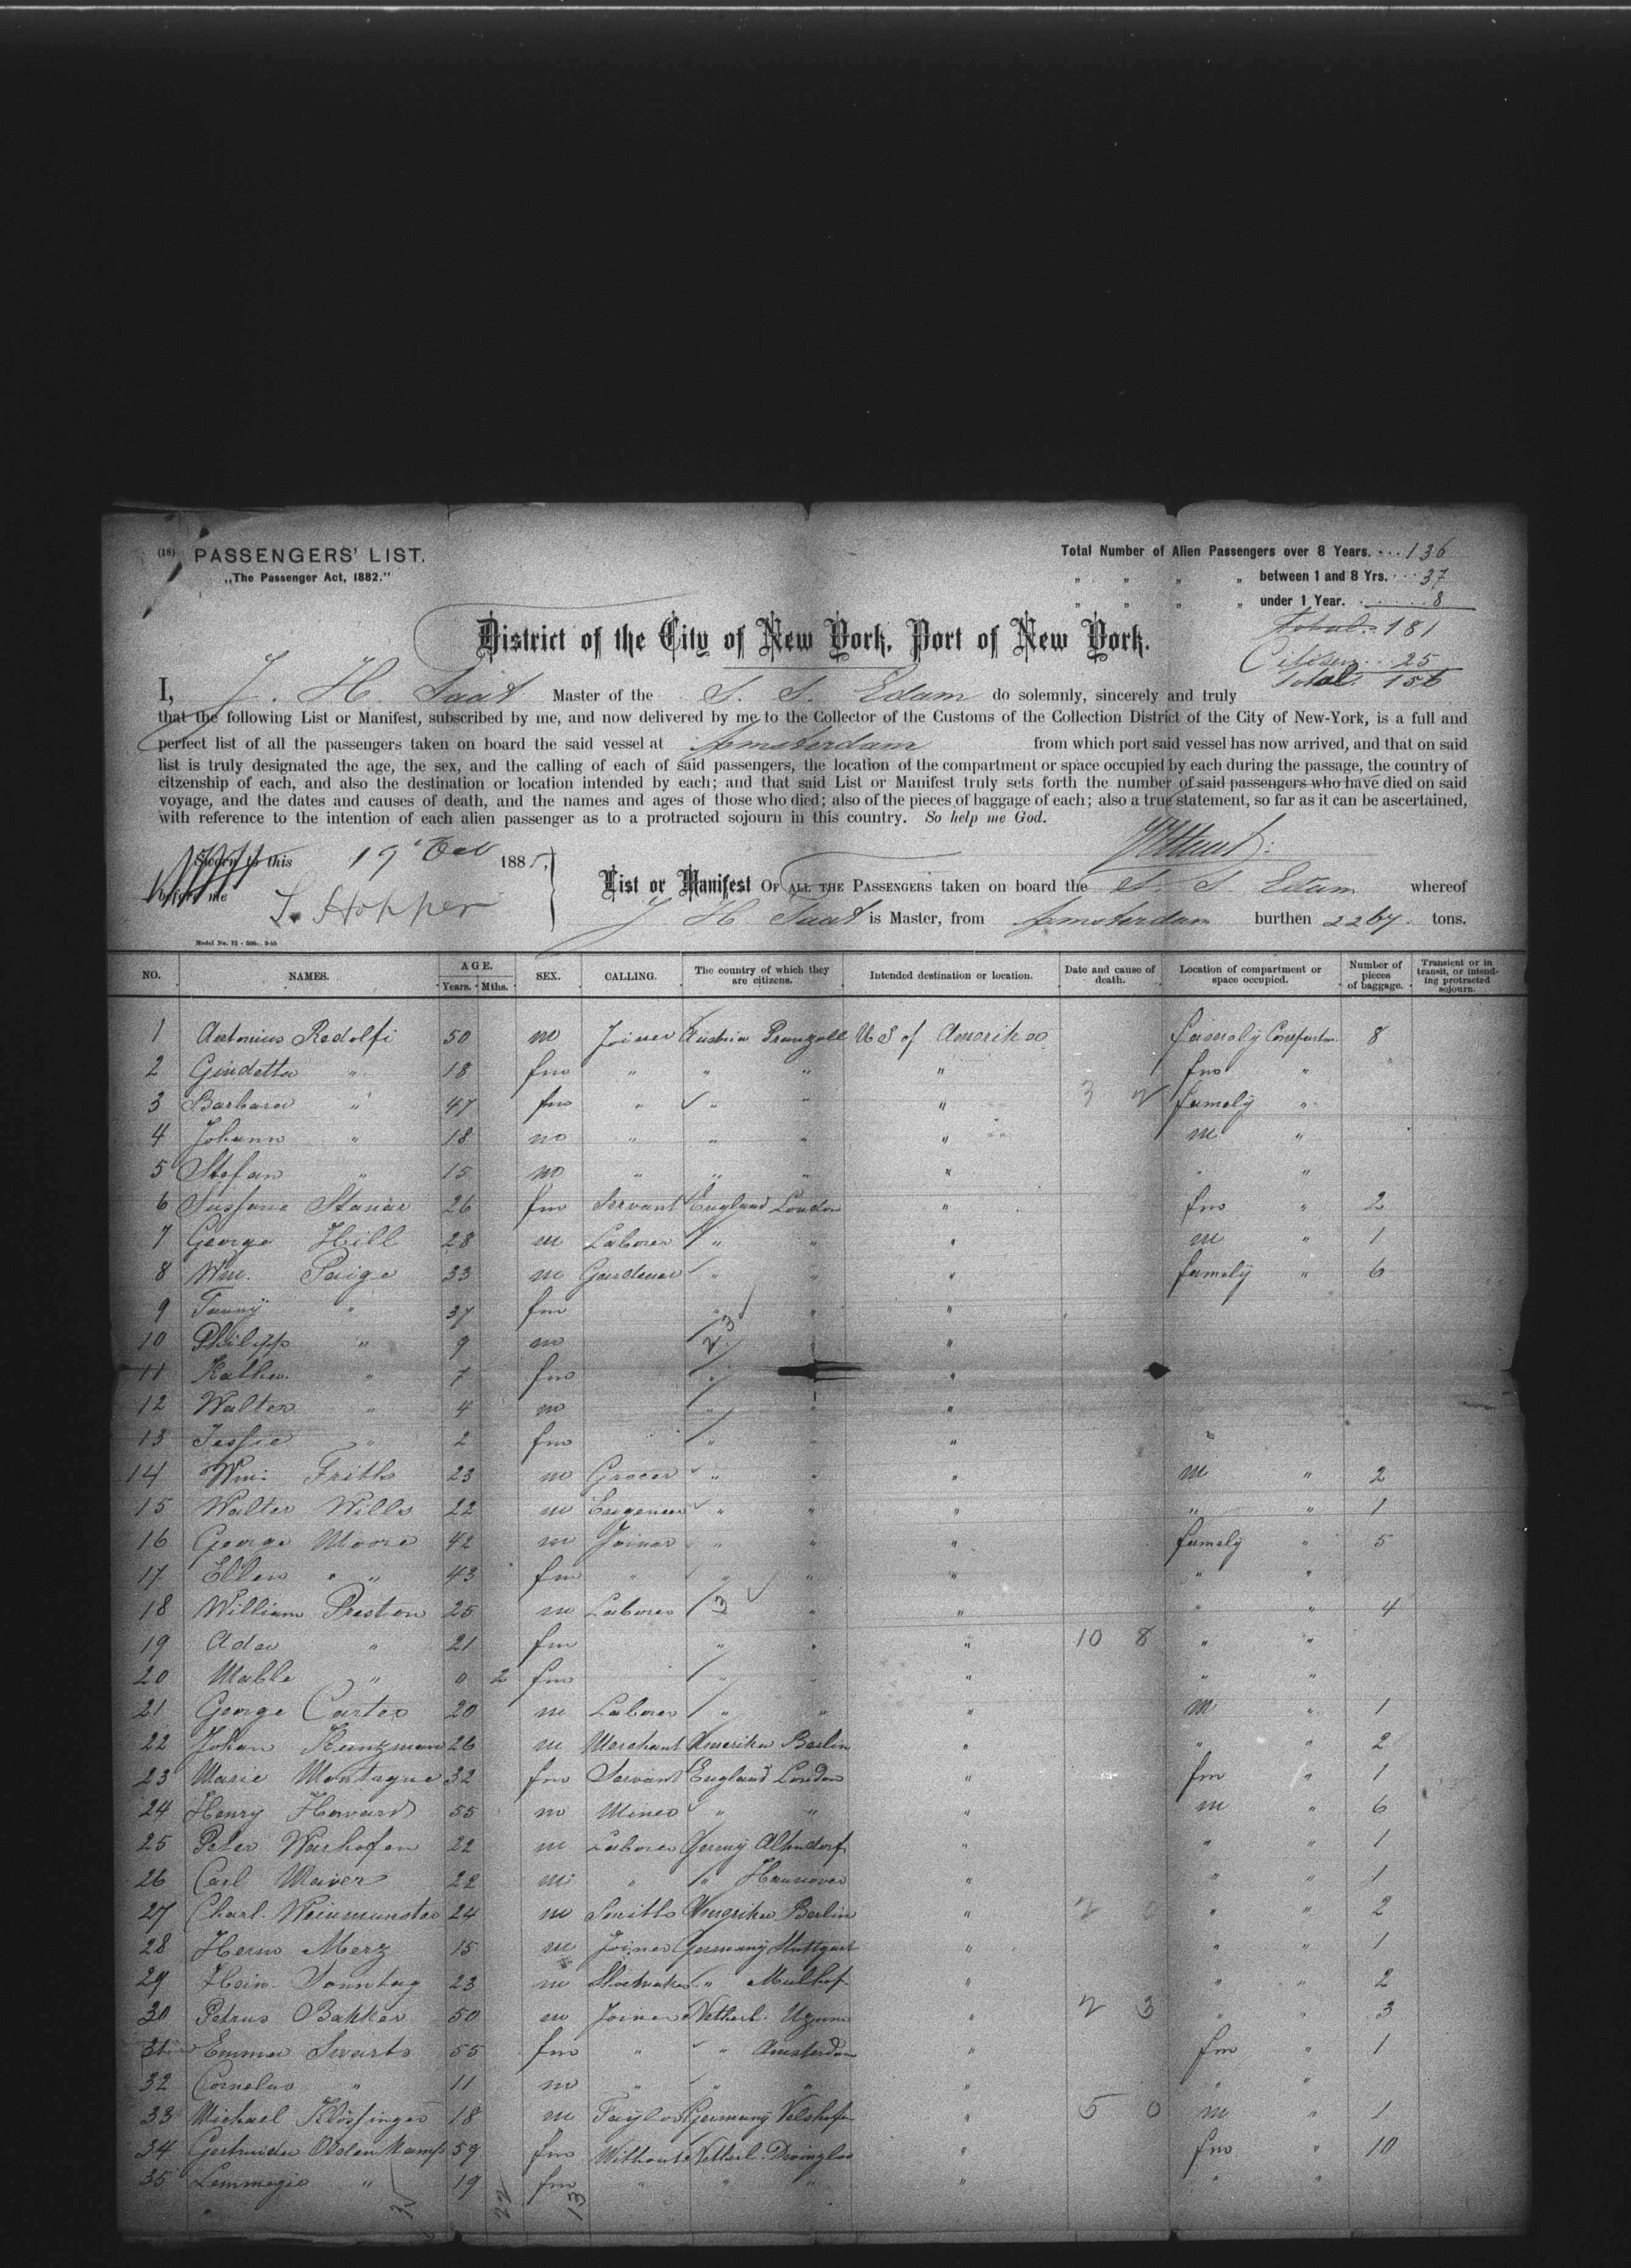 (18) PASSENGERS' LIST.
„The Passenger Act, 1882."
Total Number of Alien Passengers over 8 Years. 136
„ „ „ „ between 1 and 8 Yrs. 37
„ „ „ „ under 1 Year. 8
Total. 181
Citizen 25
Total. 156
District of the City of New York, Port of New York.
I, J. H. Taat Master of the S. S. Edam do solemnly, sincerely and truly
that the following List or Manifest, subscribed by me, and now delivered by me to the Collector of the Customs of the Collection District of the City of New-York, is a full and
perfect list of all the passengers taken on board the said vessel at Amsterdam from which port said vessel has now arrived, and that on said
list is truly designated the age, the sex, and the calling of each of said passengers, the location of the compartment or space occupied by each during the passage, the country of
citzenship of each, and also the destination or location intended by each; and that said List or Manifest truly sets forth the number of said passengers who have died on said
voyage, and the dates and causes of death, and the names and ages of those who died; also of the pieces of baggage of each; also a true statement, so far as it can be ascertained,
with reference to the intention of each alien passenger as to a protracted sojourn in this country. So help me God.
Sworn to this 19 1885,
before me J. Hopper
List or Manifest OF ALL THE PASSENGERS taken on board the S. S. Edam whereof
J. H. Taat is Master, from Amsterdam burthen 2267 tons.
NO. NAMES. AGE. Years. Mths. SEX. CALLING. The country of which they are citizens. Intended destination or location. Date and cause of death. Location of compartment or space occupied. Number of pieces of baggage. Transient or in transit, or intending protracted sojourn.
1 Antonius Redolfi 50 m Joiner Austria U S of Amerika famely 8
2 Gindetta " 18 fm " " " " fm " "
3 Barbara " 47 fm " " " " 3 2 famely "
4 Johann " 18 m " " " " m "
5 Stefan " 15 m " " " " " "
6 Sussane Stanar 26 fm Servant England London " fm " 2
7 George Hill 28 m Laborer " " " m " 1
8 Wm. Paige 33 m Gardener " " " famely " 6
9 Fanny " 37 fm " " "
10 Philipp " 9 m 23 "
11 Katha. " 7 fm " "
12 Walter " 4 m " " "
13 Jessie " 2 fm " " " "
14 Wm. Friths 23 m Grocer " " " m " 2
15 Walter Wills 22 m Engeneer " " " " " 1
16 George Moore 42 m Joiner " " " famely " 5
17 Ellen " 43 fm " " " " " "
18 William Preston 25 m Laborer 3 " " " " 4
19 Ada " 21 fm " " " 10 8 " "
20 Mable " 0 2 fm " " " " "
21 George Carter 20 m Laborer " " " m " 1
22 Johan Kunzman 26 m Merchant Amerika Berlin " " " 2
23 Marie Montague 32 fm Servant England London " fm " 1
24 Henry Howard 55 m Miner " " " m " 6
25 Peter Warhofen 22 m Laborer Germy Altendorf " " " 1
26 Carl Maiver 22 m " " Hannover " " " 1
27 Charl. Weinmunster 24 m Smiths Amerika Berlin " 2 0 " " 2
28 Herm Merz 15 m Joiner Germany Stuttgart " " " 1
29 Hein. Sonntag 23 m Shoemaker " Mulhof " " " 2
30 Petrus Bakker 50 m Joiner Netherl. " 2 3 " " 3
31 Emma Swarts 55 fm " " Amsterdam " fm " 1
32 Cornelus " 11 m " " " " " "
33 Michael 18 m Taylor Germany " 5 0 m " 1
34 Gertruida Oldenkamp 59 fm Without Netherl. Dwingloo " fm " 10
35 Lemmegie " 19 fm " " " " " "
22 13